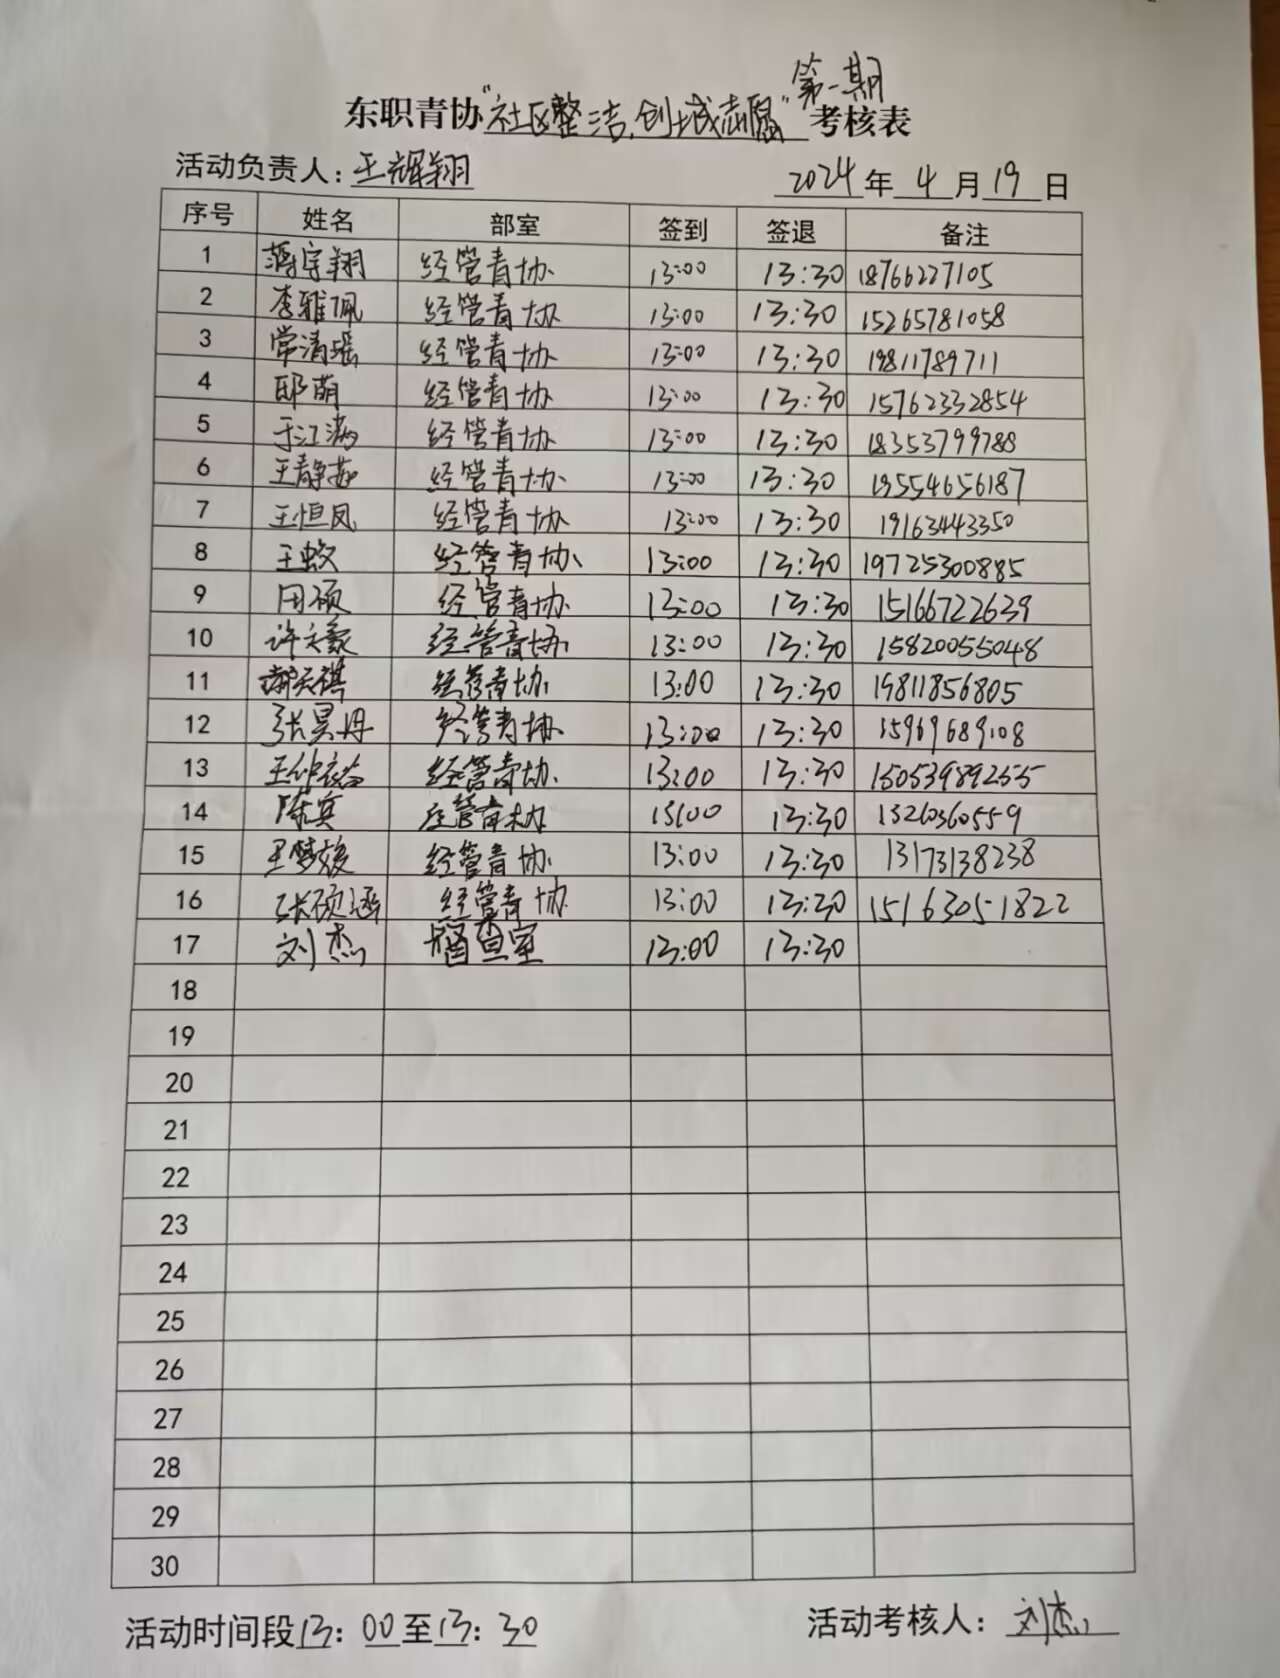 第一期
东职青协“社区整洁,创城志愿”考核表
活动负责人:王辉翔 2024年4月19日
序号 姓名 部室 签到 签退 备注
1 蒋宇翔 经管青协 13:00 13:30 18766227105
2 李雅佩 经管青协 13:00 13:30 15265781058
3 常清瑶 经管青协 13:00 13:30 19811789711
4 邸萌 经管青协 13:00 13:30 15762332854
5 于江涵 经管青协 13:00 13:30 18353799788
6 王静茹 经管青协 13:00 13:30 19554656187
7 王恒凤 经管青协 13:00 13:30 19163443350
8 王蛟 经管青协 13:00 13:30 19725300885
9 田硕 经管青协 13:00 13:30 15166722639
10 许文豪 经管青协 13:00 13:30 15820055048
11 天祺 经管青协 13:00 13:30 19811856805
12 张昊丹 经管青协 13:00 13:30 15969689108
13 王钟 经管青协 13:00 13:30 15053989255
14 陈宾 经管青协 13:00 13:30 13260360559
15 王梦媛 经管青协 13:00 13:30 13173138238
16 张硕涵 经管青协 13:00 13:30 15163051822
17 刘杰 督查室 13:00 13:30
18
19
20
21
22
23
24
25
26
27
28
29
30
活动时间段13:00至13:30 活动考核人:刘杰